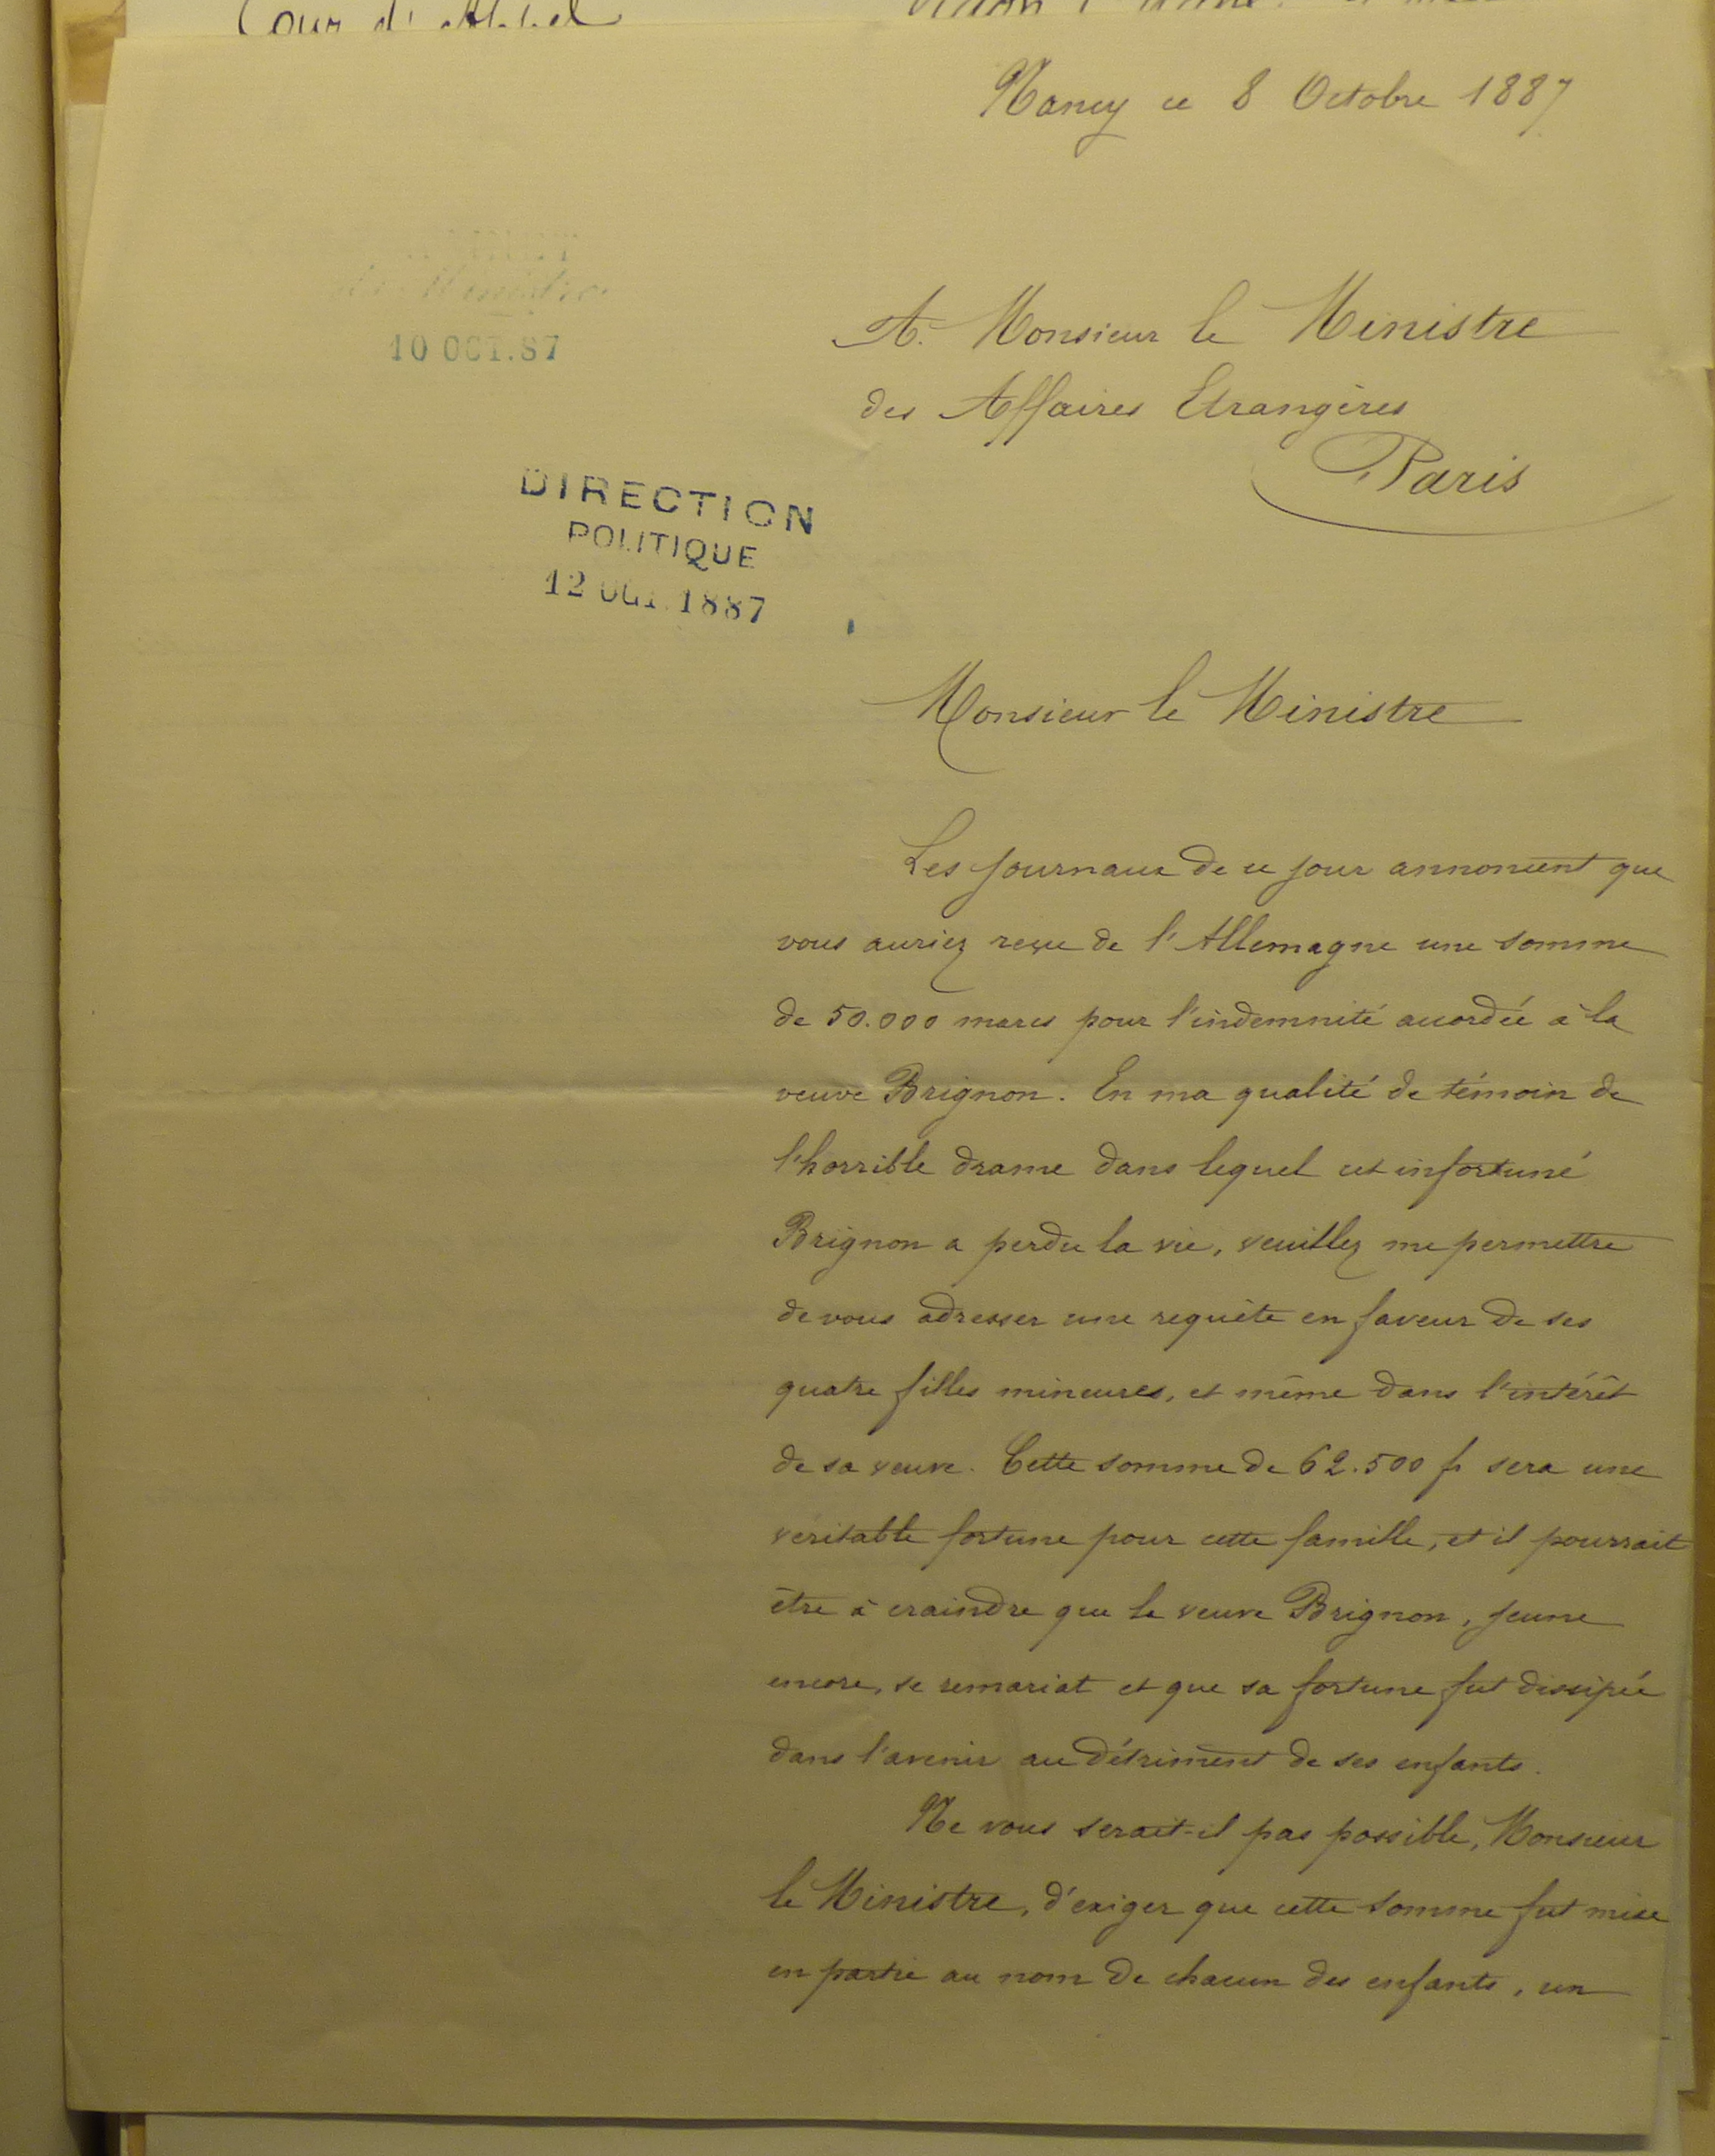 Cour d'Appel
Nancy ce 8 Octobre 1887
du Ministre
10 OCT. 87
A Monsieur le Ministre
des Affaires Etrangères
Paris
DIRECTION
POLITIQUE
12 OCT. 1887
Monsieur le Ministre
Les journaux de ce jour annoncent que
vous auriez reçue de l'Allemagne une somme
de 50.000 marcs pour l'indemnité accordée à la
veuve Brignon. En ma qualité de témoin de
l'horrible drame dans lequel cet infortuné
Brignon a perdu la vie, veuillez me permettre
de vous adresser une requête en faveur de ses
quatre filles mineures, et même dans l'intérêt
de sa veuve. Cette somme de 62.500 f. sera une
véritable fortune pour cette famille, et il pourrait
être à craindre que la veuve Brignon, jeune
encore, se remariat et que sa fortune fut dissipée
dans l'avenir au détriment de ses enfants.
Ne vous serait-il pas possible, Monsieur
le Ministre, d'exiger que cette somme fut mise
en partie au nom de chacun des enfants, un